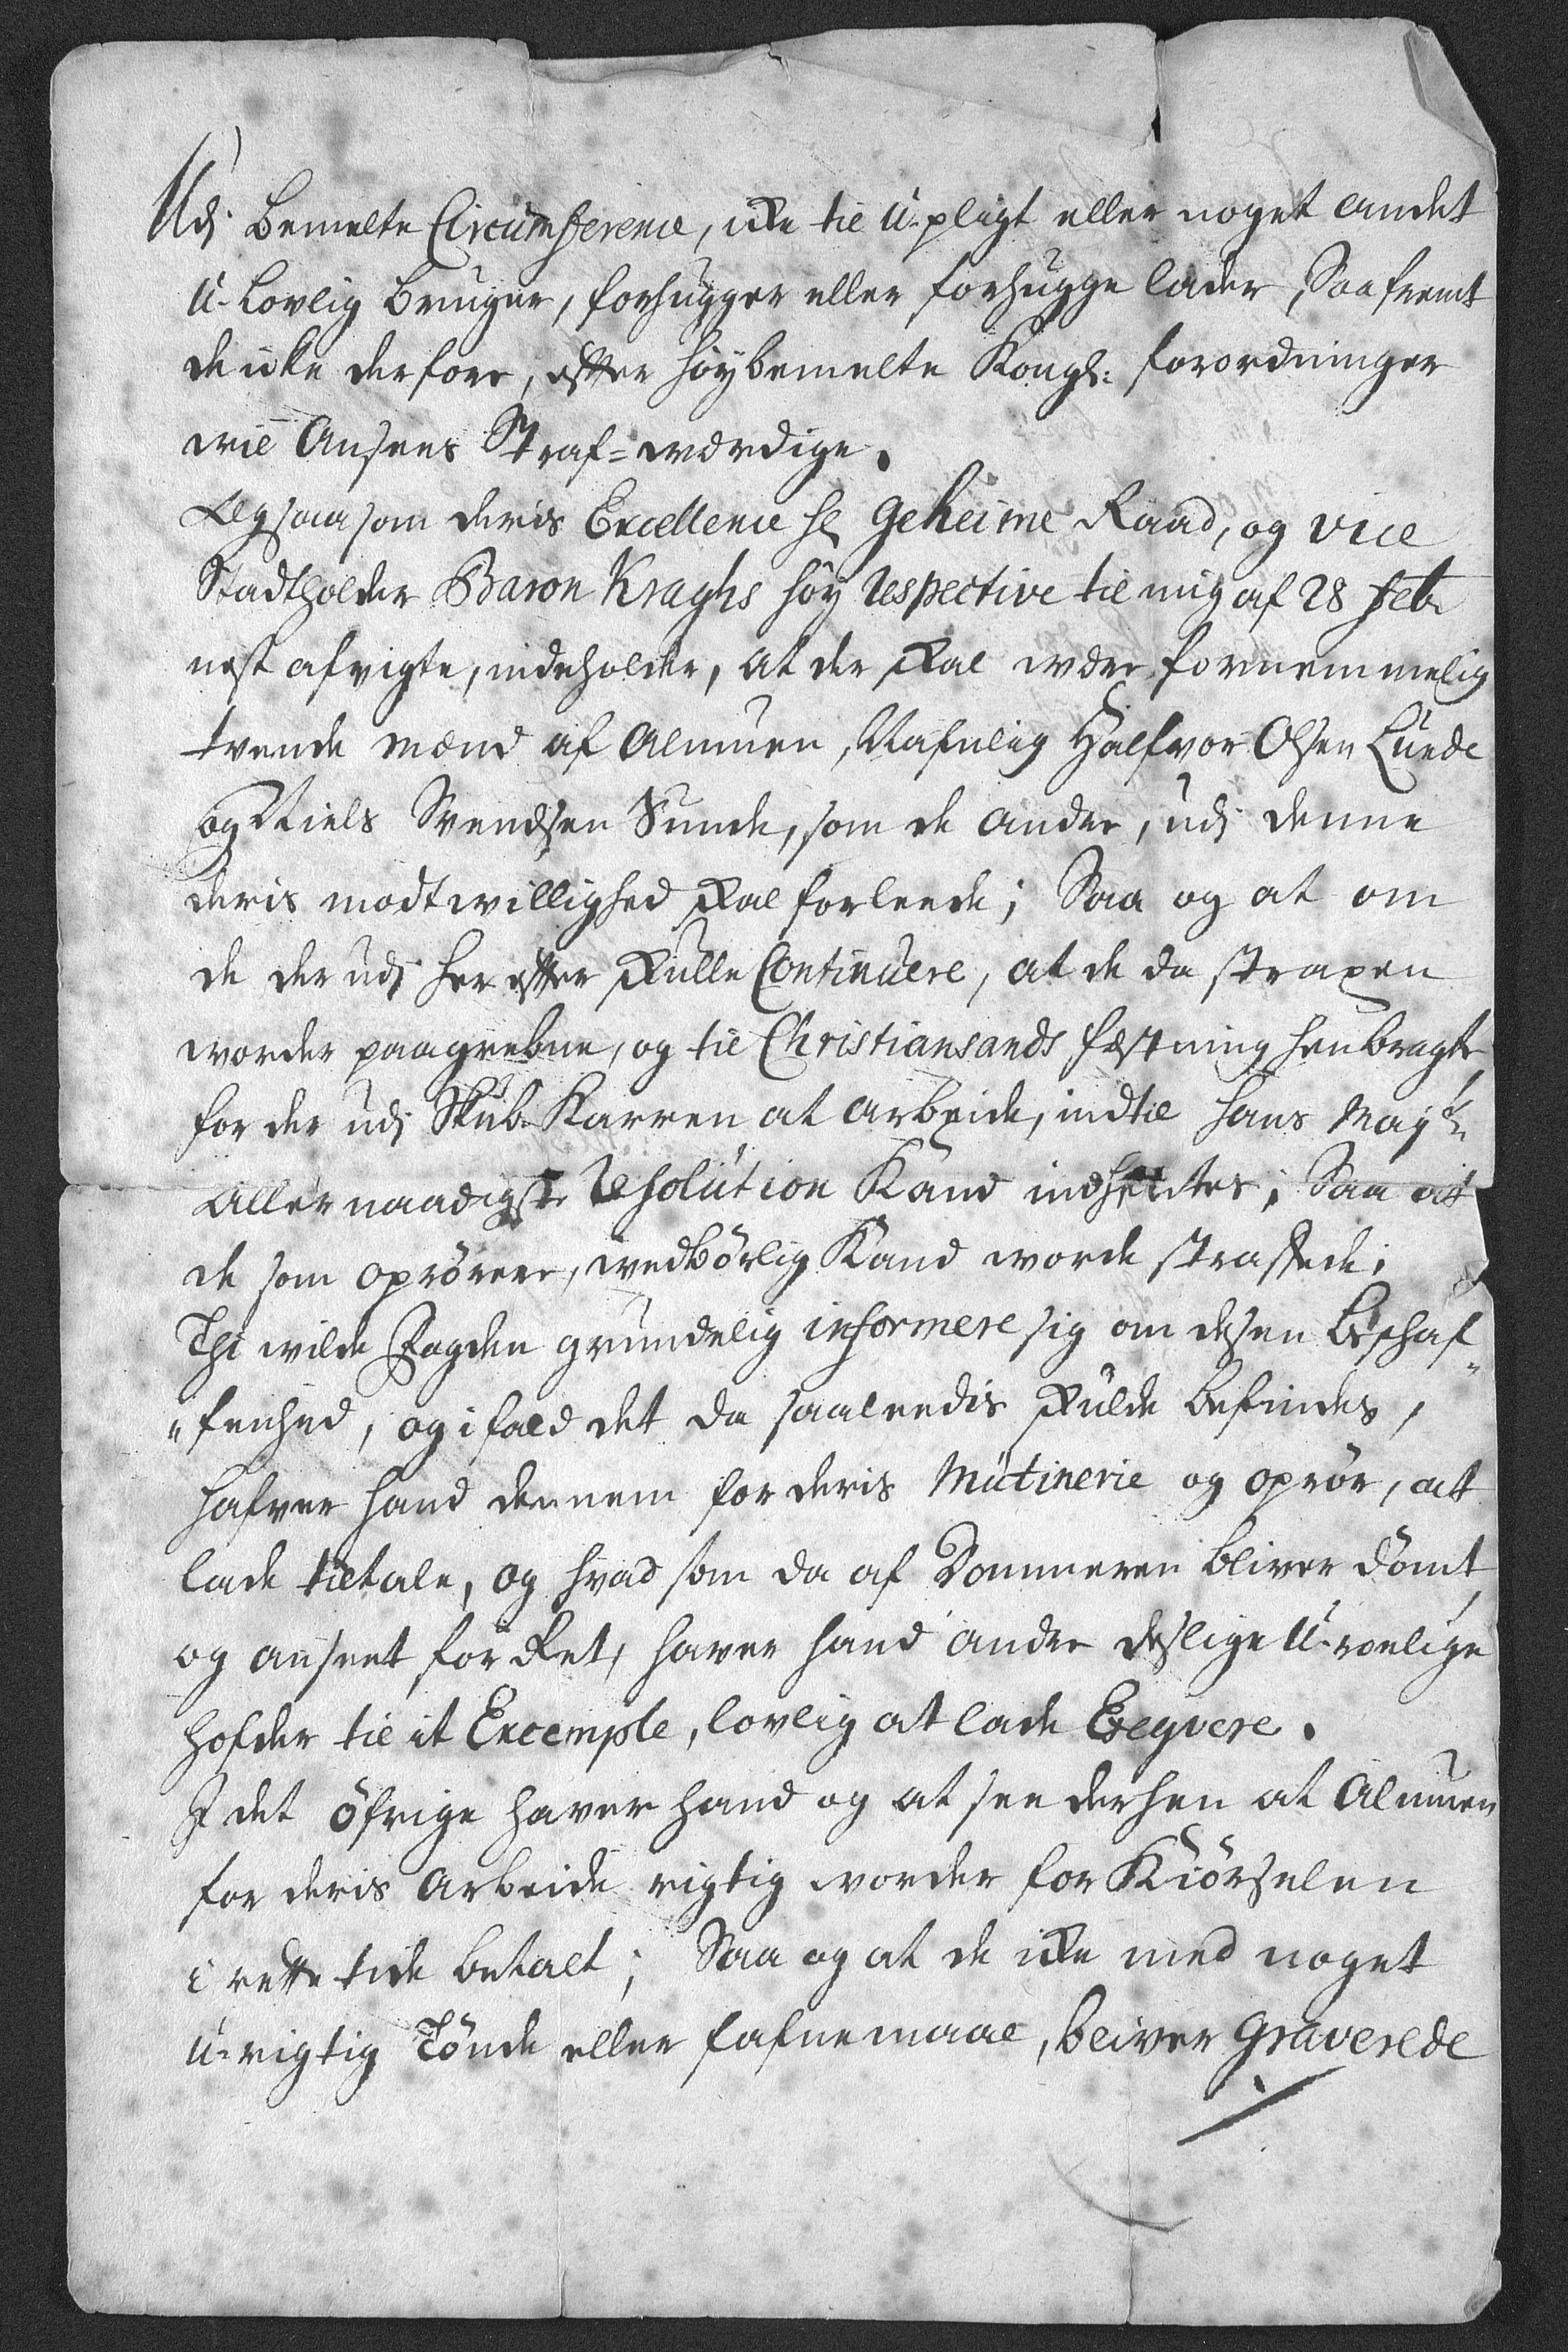 Udj bemelte Circumference, icke til u-pligt eller noget andet
u-lovlig bruger, forhugger eller forhugge lader, Saafremt
de icke derfore, efter høybemelte Kongl: forordninger
vil Ansees Straf=værdige.
Ligesaasom deris Excellence hr Geheime Raad, og vice
Stadtholder Baron Kraghs høy respective til mig af 28 feb:
nest afvigte, indeholder, at der skal være fornemmelig
tvende mænd af Almuen, Nafnlig Halfvor Olsen Lunde
og Niels Svendsen Sunde, som de andre, udj denne
deris modtwillighed skal forleede; Saa og at om
de der udj her efter skulle Continuere, at de da straxen
worder paagrebne, og til Christiansands fæstning henbragte,
for der udj Skub-Karren at arbeide, indtil hans Mayts:
allernaadigste Resolution Kand indhentes; Saa at
de som oprørere, wedbørlig Kand worde straffede;
Thi wilde Fogden grundelig informere sig om desen beschaf„
„fenhed, og ifald det da saaleedis skulde befindes,
hafver hand dennem for deris Mutinerie og oprør, at
lade tiltale, og hvad som da af Dommeren bliver dømt,
og anseet for Ret, haver hand andre deslige u-roelige
hofder til it Excemple, lovlig at lade Exeqvere.
I det øfrige haver hand og at see derhen at Almuen
for deris Arbeide rigtig worder for Kiørselen
i rette tide betalt; Saa og at de icke med noget
u-rigtig Tønde eller fafnemaal, bliver Graverede